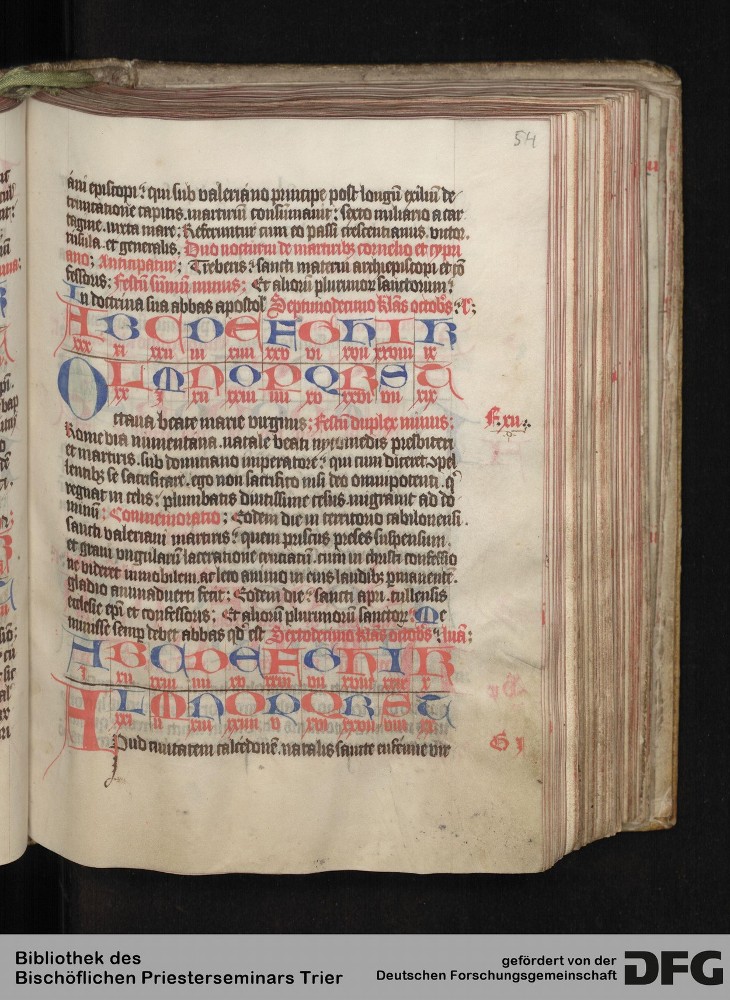 54
ani episcopi? qui sub valeriano principe post longū exiliū de
truncatione capitis. martiriū consumauit: sexto miliario a car
tagine. iuxta mare: Referuntur cum eo passi crescentianus. victor.
rusula. et generalis. Duo nocturni de martirib; cornelio et cypri
ano; Anticipatur; Treberis: sancti materni archiepiscopi et cō
fessoris: Festū sūmum minus: Et aliorū plurimor sanctorum:
In doctrina sua abbas apostol Septimodecimo klās octobs
A B C D E F G H I K
xxx xi xxii iii xiiii xxv vi xvii xxviii ix
L M N O P Q R S T
xx i xii xxiii iiii xv xxvi vii xix
Octaua beate marie virginis; Festū duplex minus; F. xii
Rome via numentana. natale beati nycomedis presbiteri
et martiris. sub domitiano imperatore: qui cum diceret ɔpel
lentib; se sacrificare. ego non sacrifico nisi deo omnipotenti. q
regnat in celis: plumbatis diutissime cesus. migrauit ad do
minū: Commemoratio; Eodem die in territorio cabilonensi.
sancti valeriani martiris: quem priscus preses suspensum.
et graui vngularū laceratione cruciatū. cum in christi confessio
ne videret immobilem. ac leto animo in eius laudib; pmanentē.
gladio animaduerti fecit: Eodem die: sancti apri. tullensis
ecclesie epī et confessoris; Et aliorū plurimorū sanctor: Me
minisse semp debet abbas qd est Sextodecimo klās octobs luā;
A B C D E F G H I K
i xii xxiii iiii xv xxvi vii xviii xxix x
L M N O P Q R S T
xxi ii xiii xxiiii v xvi xxvii viii xx
Apud ciuitatem calcedonē. natalis sancte eufemie vir G I
Bibliothek des
Bischöflichen Priesterseminars Trier
gefördert von der
Deutschen Forschungsgemeinschaft
DFG